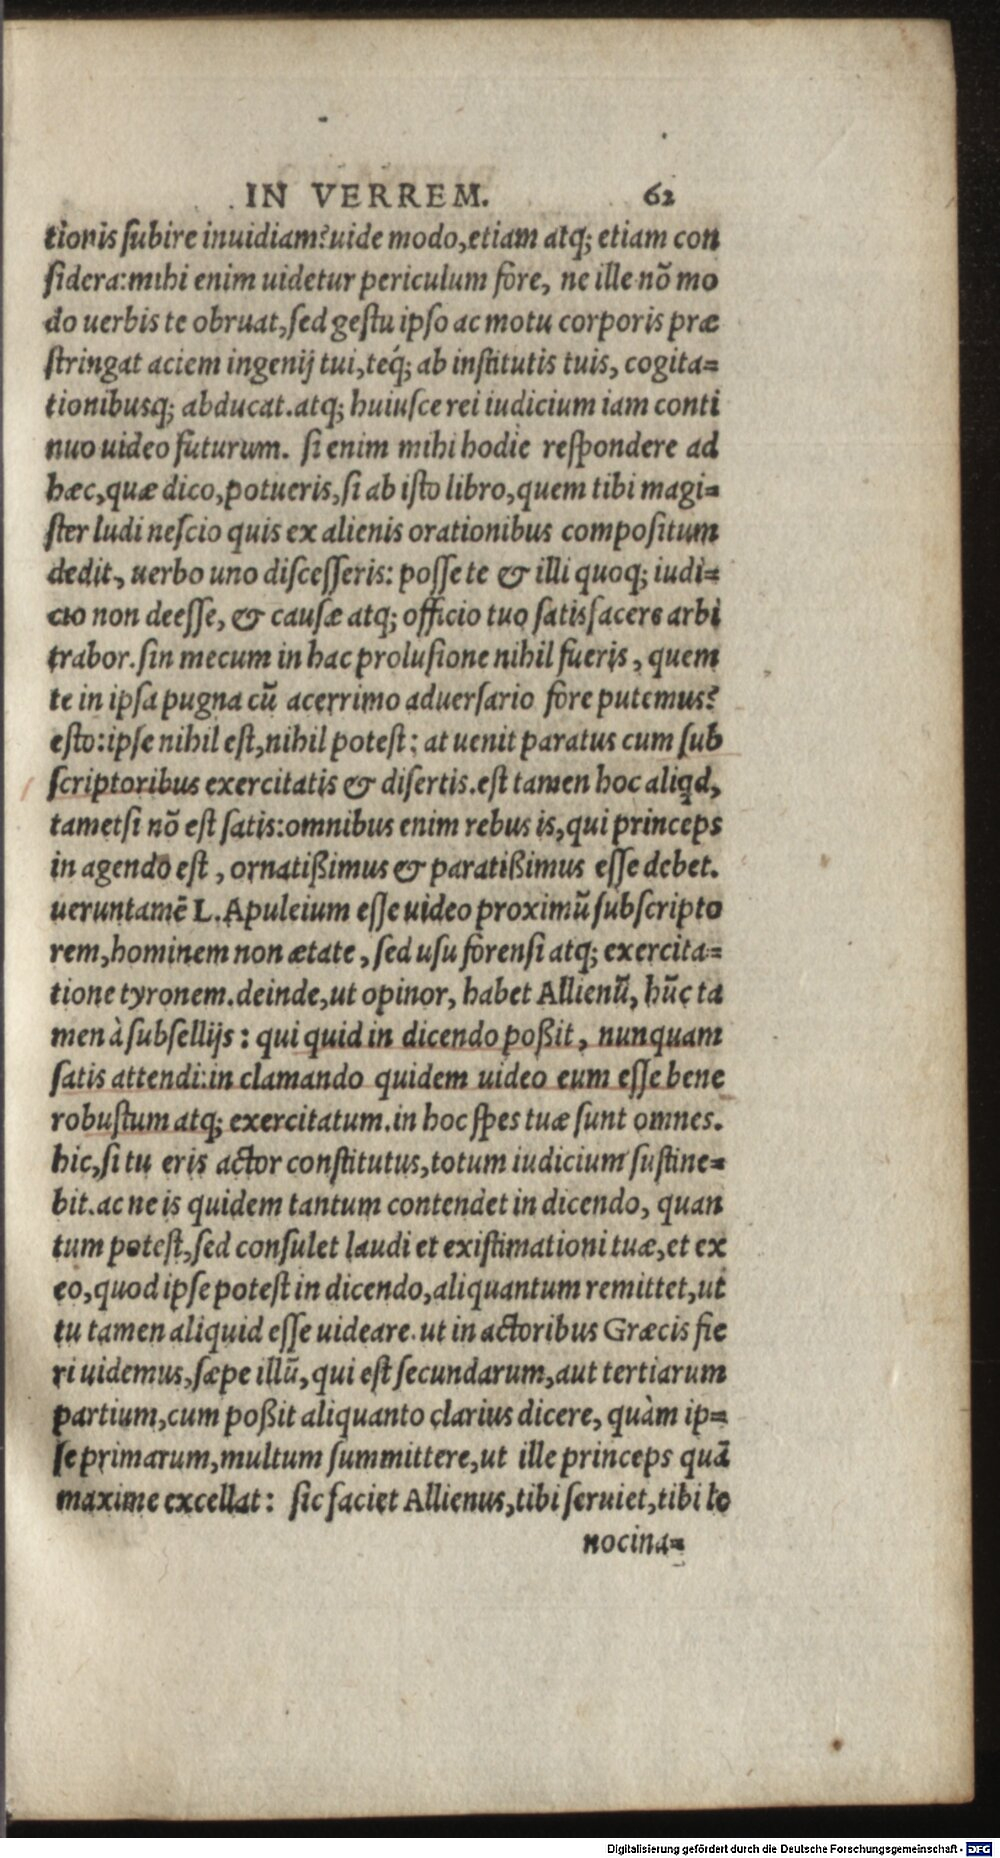 IN VERREM. 62
tionis subire inuidiam? uide modo, etiam atq; etiam con
sidera: mihi enim uidetur periculum fore, ne ille nõ mo
do uerbis te obruat, sed gestu ipso ac motu corporis præ
stringat aciem ingenij tui, teq́; ab institutis tuis, cogita=
tionibusq; abducat. atq; huiusce rei iudicium iam conti
nuo uideo futurum. si enim mihi hodie respondere ad
hæc, quæ dico, potueris, si ab isto libro, quem tibi magi=
ster ludi nescio quis ex alienis orationibus compositum
dedit, uerbo uno discesseris: posse te & illi quoq; iudi=
cio non deesse, & causæ atq; officio tuo satisfacere arbi
trabor. sin mecum in hac prolusione nihil fueris, quem
te in ipsa pugna cũ acerrimo aduersario fore putemus?
esto: ipse nihil est, nihil potest: at uenit paratus cum sub
scriptoribus exercitatis & disertis. est tamen hoc aliqd,
tametsi nõ est satis: omnibus enim rebus is, qui princeps
in agendo est, ornatißimus & paratißimus esse debet.
ueruntamẽ L. Apuleium esse uideo proximũ subscripto
rem, hominem non ætate, sed usu forensi atq; exercita=
tione tyronem. deinde, ut opinor, habet Allienũ, hũc ta
men à subsellijs: qui quid in dicendo poßit, nunquam
satis attendi: in clamando quidem uideo eum esse bene
robustum atq; exercitatum. in hoc spes tuæ sunt omnes.
hic, si tu eris actor constitutus, totum iudicium sustine=
bit. ac ne is quidem tantum contendet in dicendo, quan
tum potest, sed consulet laudi et existimationi tuæ, et ex
eo, quod ipse potest in dicendo, aliquantum remittet, ut
tu tamen aliquid esse uideare. ut in actoribus Græcis fie
ri uidemus, sæpe illũ, qui est secundarum, aut tertiarum
partium, cum poßit aliquanto clarius dicere, quàm ip=
se primarum, multum summittere, ut ille princeps quã
maxime excellat: sic faciet Allienus, tibi seruiet, tibi le
nocina=
Digitalisierung gefördert durch die Deutsche Forschungsgemeinschaft - DFG